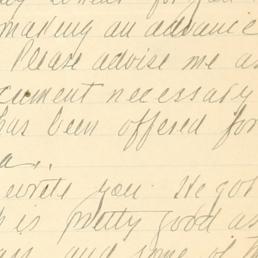 making an advance
Please advise me as
cument necessary
has been offered for
a..
write you. He got
is pretty good as
and some of th